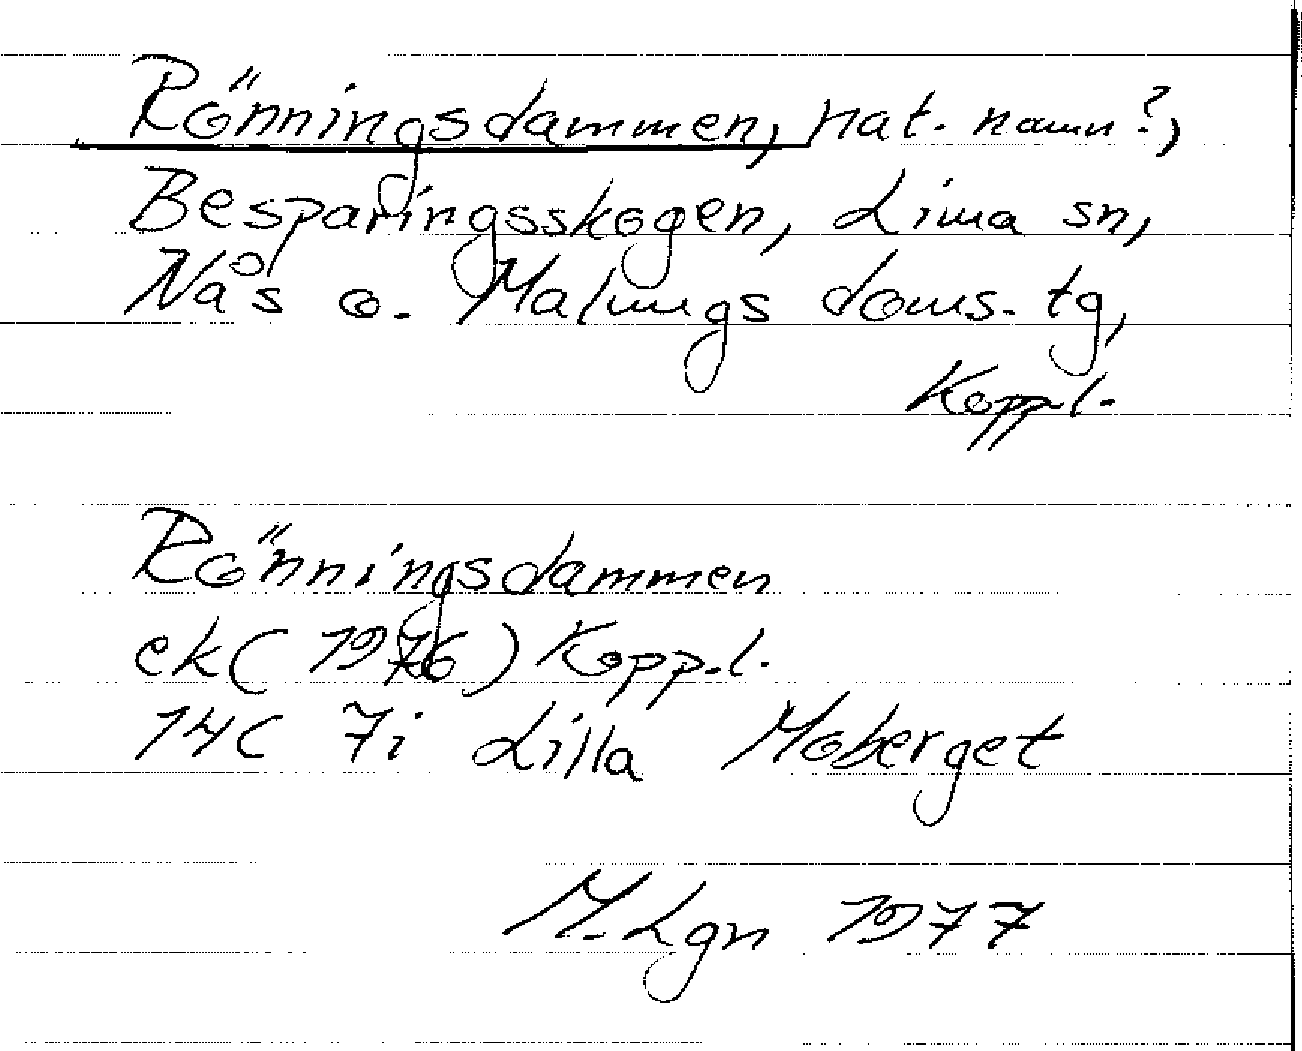 Rönningsdammen, nat. namn?,
Besparingsskogen, Lima sn,
Nås o. Malungs doms. tg,
Koppl.
Rönningsdammen
ek (1976) Kopp.l.
14C 7i Lilla Moberget
M. Lgn 1977